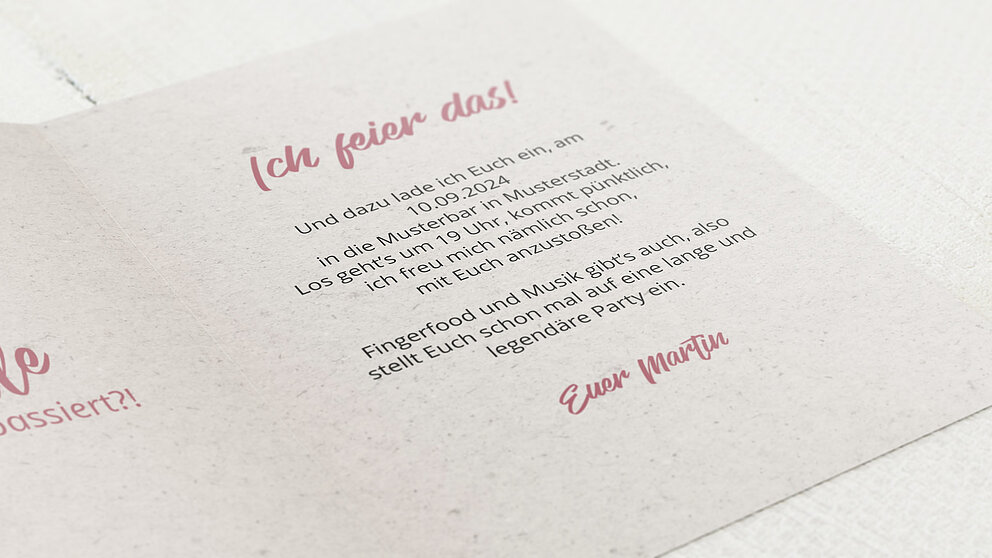 Ich feier das!
Und dazu lade ich Euch ein, am
10.09.2024
in die Musterbar in Musterstadt.
Los geht's um 19 Uhr, kommt pünktlich,
ich freu mich nämlich schon,
mit Euch anzustoßen!
Fingerfood und Musik gibt's auch, also
stellt Euch schon mal auf eine lange und
legendäre Party ein.
Euer Martin
passiert?!